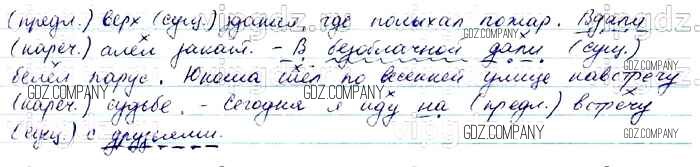 (предл.) верх (сущ.) здания, где полыхал пожар. Вдали
(нареч.) алел закат. - В безоблачной дали (сущ.)
белел парус. Юноша шёл по весенней улице навстречу
(нареч.) судьбе. - Сегодня я иду на (предл.) встречу
(сущ.) с друзьями.
GDZ.COMPANY
GDZ.COMPANY
GDZ.COMPANY
GDZ.COMPANY
GDZ.COMPANY
GDZ.COMPANY